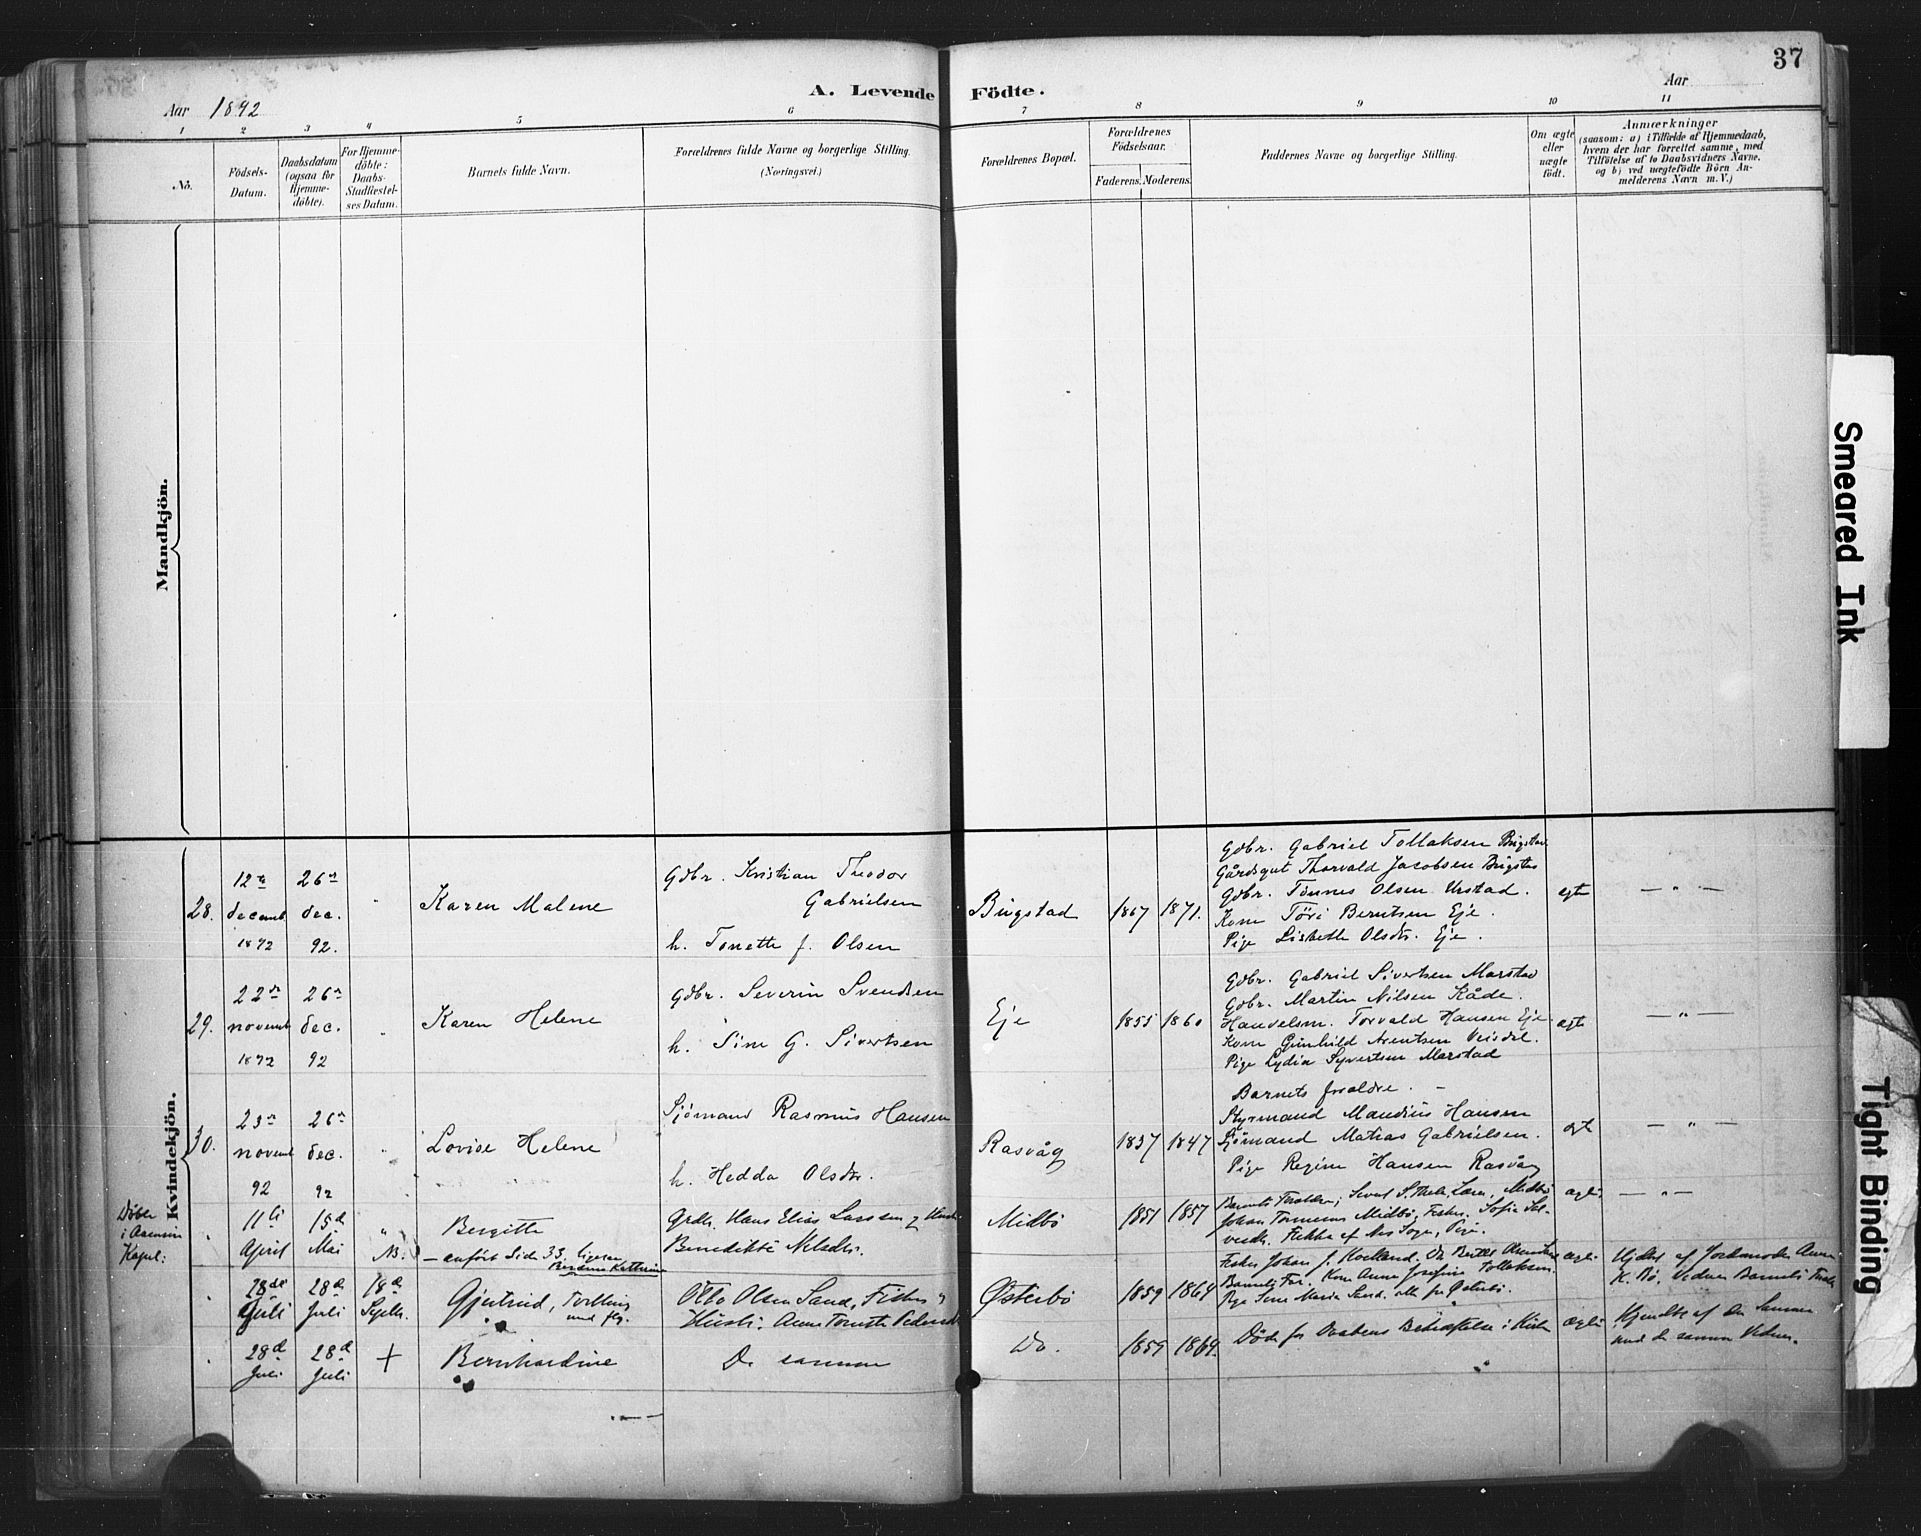 37
A. Levende Födte.
Aar 1892
Aar
1 2 3 4 5 6 7 8 9 10 11
No.
Födsels-
Datum.
Daabsdatum
(ogsaa for
Hjemme-
döbte).
For Hjemme-
döbte:
Daabs-
Stadfæstel-
ses Datum.
Barnets fulde Navn.
Forældrenes fulde Navne og borgerlige Stilling.
(Næringsvei.)
Forældrenes Bopæl.
Forældrenes
Födselsaar.
Faderens. Moderens.
Faddernes Navne og borgerlige Stilling.
Om ægte
eller
uægte
födt.
Anmærkninger
(saasom: a) i Tilfælde af Hjemmedaab,
hvem der har forrettet samme, med
Tilföielse af to Daabsvidners Navne.
og b) ved uægtefödte Börn An-
melderens Navn m. V.)
Mandkjön.
Kvindekjön.
28.
12te
decemb
1892
26de
dec.
92.
"
Karen Malene
Gdbr. Kristian Theodor
Gabrielsen
h. Tonette f. Olsen
Bugstad
1867
1871.
Gdbr. Gabriel Tollaksen Bugstad
Gårdsgut Thorvald Jacobsen Bugstad
Gdbr. Tönnes Olsen Urstad.
Kone Töri Berntsen Eje.
Pige Lisbeth Olsdtr. Eje.
egte
— " —
29.
22de
novemb
1892
26de
dec.
92
"
Karen Helene
Gdbr. Severin Svendsen
h. Sine G. Sivertsen
Eje
1855
1860
Gdbr. Gabriel Sivertsen Marstad
Gdbr. Martin Nilsen Kåde.
Handelsm. Torvald Hansen Eje
Kone Gunhild Arentsen Veisdal.
Pige Lydia Syvertsen Marstad
egte
— " —
30.
23de
novemb
92
26de
dec.
92
"
Lovise Helene
Sjömand Rasmus Hansen
h. Hedda Olsdtr.
Rasvåg
1837
1847
Barnets forældre. —
Styrmand Mandius Hansen
Sjömand Matias Gabrielsen.
Pige Regine Hansen Rasvåg
egte
— " —
Döbt
i
Kapel:
11te
April
15de
Mai
"
NB.
Bergitte
— anfört Side 33, ligesaa
Hans Elias Larssen og Hustr.
Benedikte Nilsdtr.
Midbö
1851
1857
Barnets Forældre; Midbö
Johan Midbö, Fisker. Sofie
Pige.
ægte
— " —
28de
Juli
28de
Juli
18de
Septbr.
Gjertrud, Tvilling
med flg.
Otto Olsen Sand, Fisker og
Hustr.
Österbö
1859
1864
Fisker Johan
Barnets Far. Kone Anne Josefine Tollaksen.
Pige Sine Marie Sand, alle fra Österbö.
ægte
Hjdbt af Jordemoder
K. Bö. Vidner Barnets
28de
Juli
28de
Juli
+
Bernhardine
De samme
Do.
1859
1864.
Död för Daabens Bekræftelse i Kirken
"
ægte
Hjemdbt af den samme
med de samme Vidner.
Smeared Ink
Tight Binding